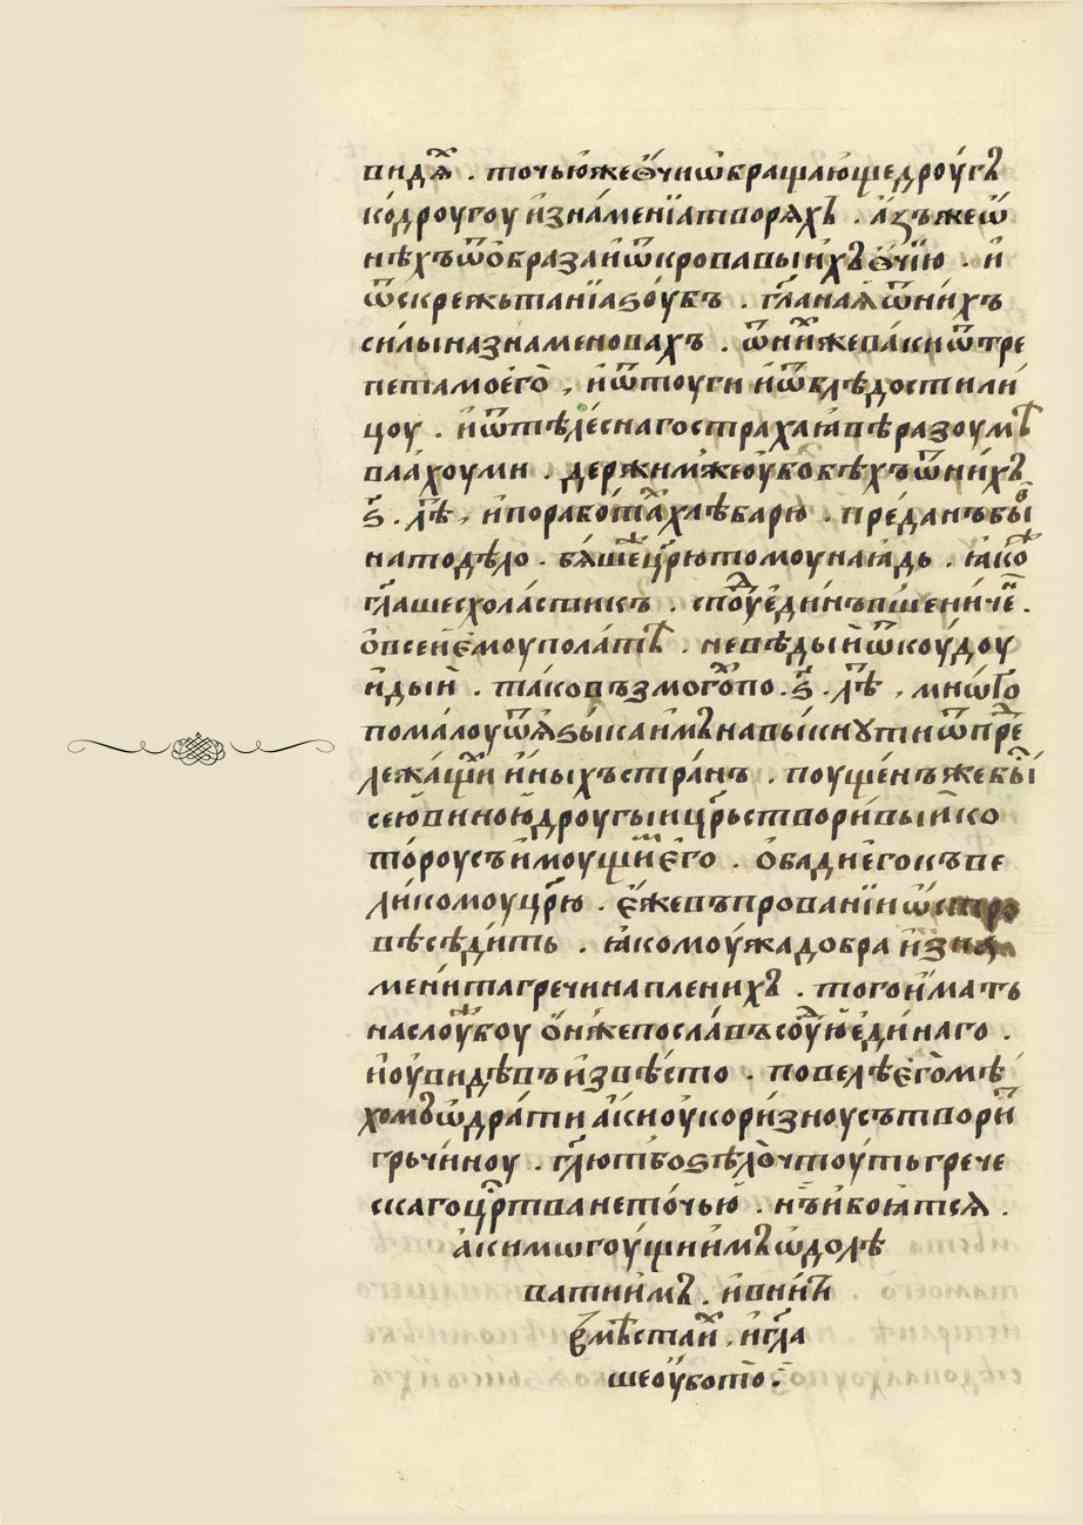 видѧх҃ . точьюжеѻ҆́чиѡ҆бращаю́щедроу́гъ
ко́дроугоу и҆зна́менїатворѧхъ . а҆́зъжеѿ
нѣхъѿѻ҆́бразаи҆ѿкровавыи҆́хъѻ҆́чїю . и҆
ѿскрежьтанїаѕоу́бъ . гл҃анаꙗѿни́хъ
си́лыназнаменовахъ . ѿни́хжепа́киѿтре
петамоего̀ , и҆ѿтоуги и҆ѿблѣдостили
цоу . и҆ѿтѣле́снагострахаꙗ҆вѣразоумѣ
ваа҆́хоуми . держи́мжеоу҆́бобѣхъѿни́хъ
ѕ҃ . лѣ҃ , и҆порабо́тахалѣварю . пре́данъбы́
натодѣло . бѧ́шецр҃ютомоунаꙗ҆дь . ꙗ҆ко
гл҃ашесхола́стикъ . спо́уеди́нъпшени́че .
ѻ҆всеи҆е҆моупола́тѣ . невѣдыи҆ѿкоу́доу
и҆́дыи҆ . та́ковъзмого́хпо . ѕ҃ . лѣ҃ , мнѡ́го
пома́лоуѿꙗ҆ѕы́каи҆́мънавы́кнꙋтииѿпре
лежа́щии и҆́ныхъстра́нъ . поуще́нъжебы́
сею҆виною҆дроугыицр҃ьствори́выи҆ко
то́роусъи҆моущи́ е҆го . ѻ҆бадие҆гокъве
ли́комоуцр҃ю . е҆́жевъпрованїииѡ҆́
вѣсѣди́ть . ꙗ҆комоу́жадобра и҆зна
мени́тагречинапленихъ . тогои҆́мать
наслоу́боу ѻ҆́нжепосла́въсоу҆́ю҆еди́наго .
и҆оу҆ви́дѣвъи҆звѣ́сто . повелѣе҆го̀мѣ
хомъѡ҆дра́тиа҆́киоу҆кори́зноусътвори
грьчи́ноу . гл҃ютбоѕѣло̀чтоу́тьгрече
скагоцр҃тването́чью . нъи҆боꙗ҆тсѧ .
а҆кимѡгоу́щиимъѡ҆долѣ
ватиимъ . и҆вни́и
вмѣстли́ . и҆гл҃а
шеоу҆́бото̀ .